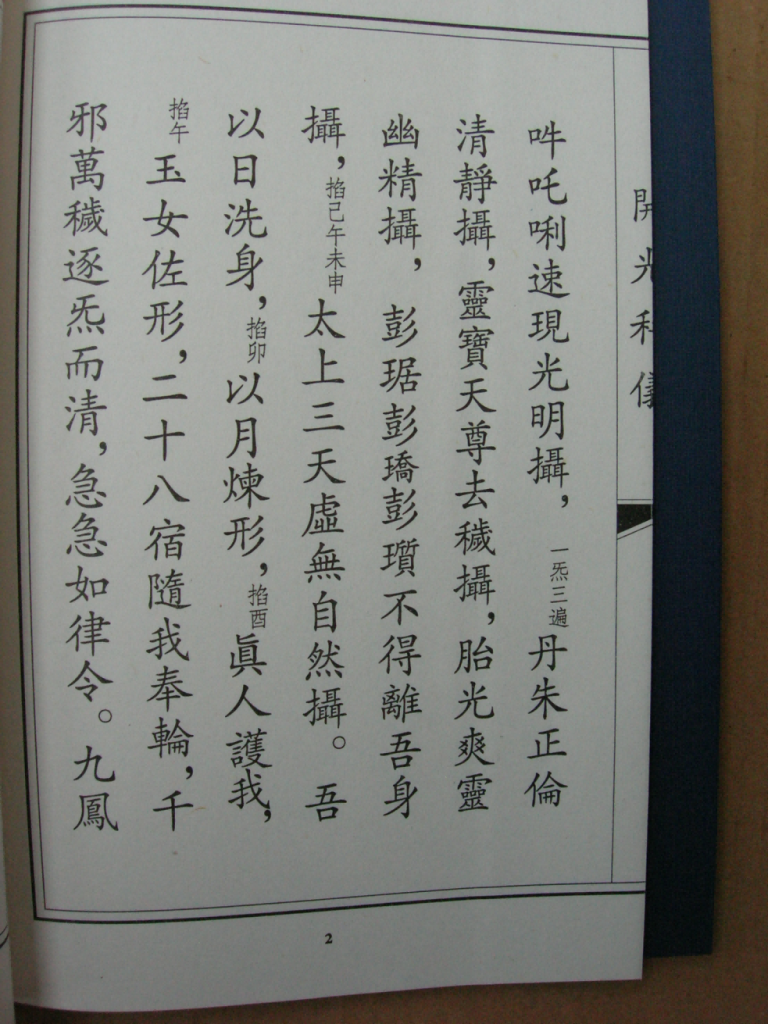 開光科儀
吽吒唎速現光明攝，一炁三遍丹朱正倫
清靜攝，靈寶天尊去穢攝，胎光爽靈
幽精攝，彭琚彭瓆彭瓆不得離吾身
攝，掐己午未申太上三天虛無自然攝。吾
以日洗身，掐卯以月煉形，掐酉眞人護我，
掐午玉女佐形，二十八宿隨我奉輪，千
邪萬穢逐炁而清，急急如律令。九鳳
2